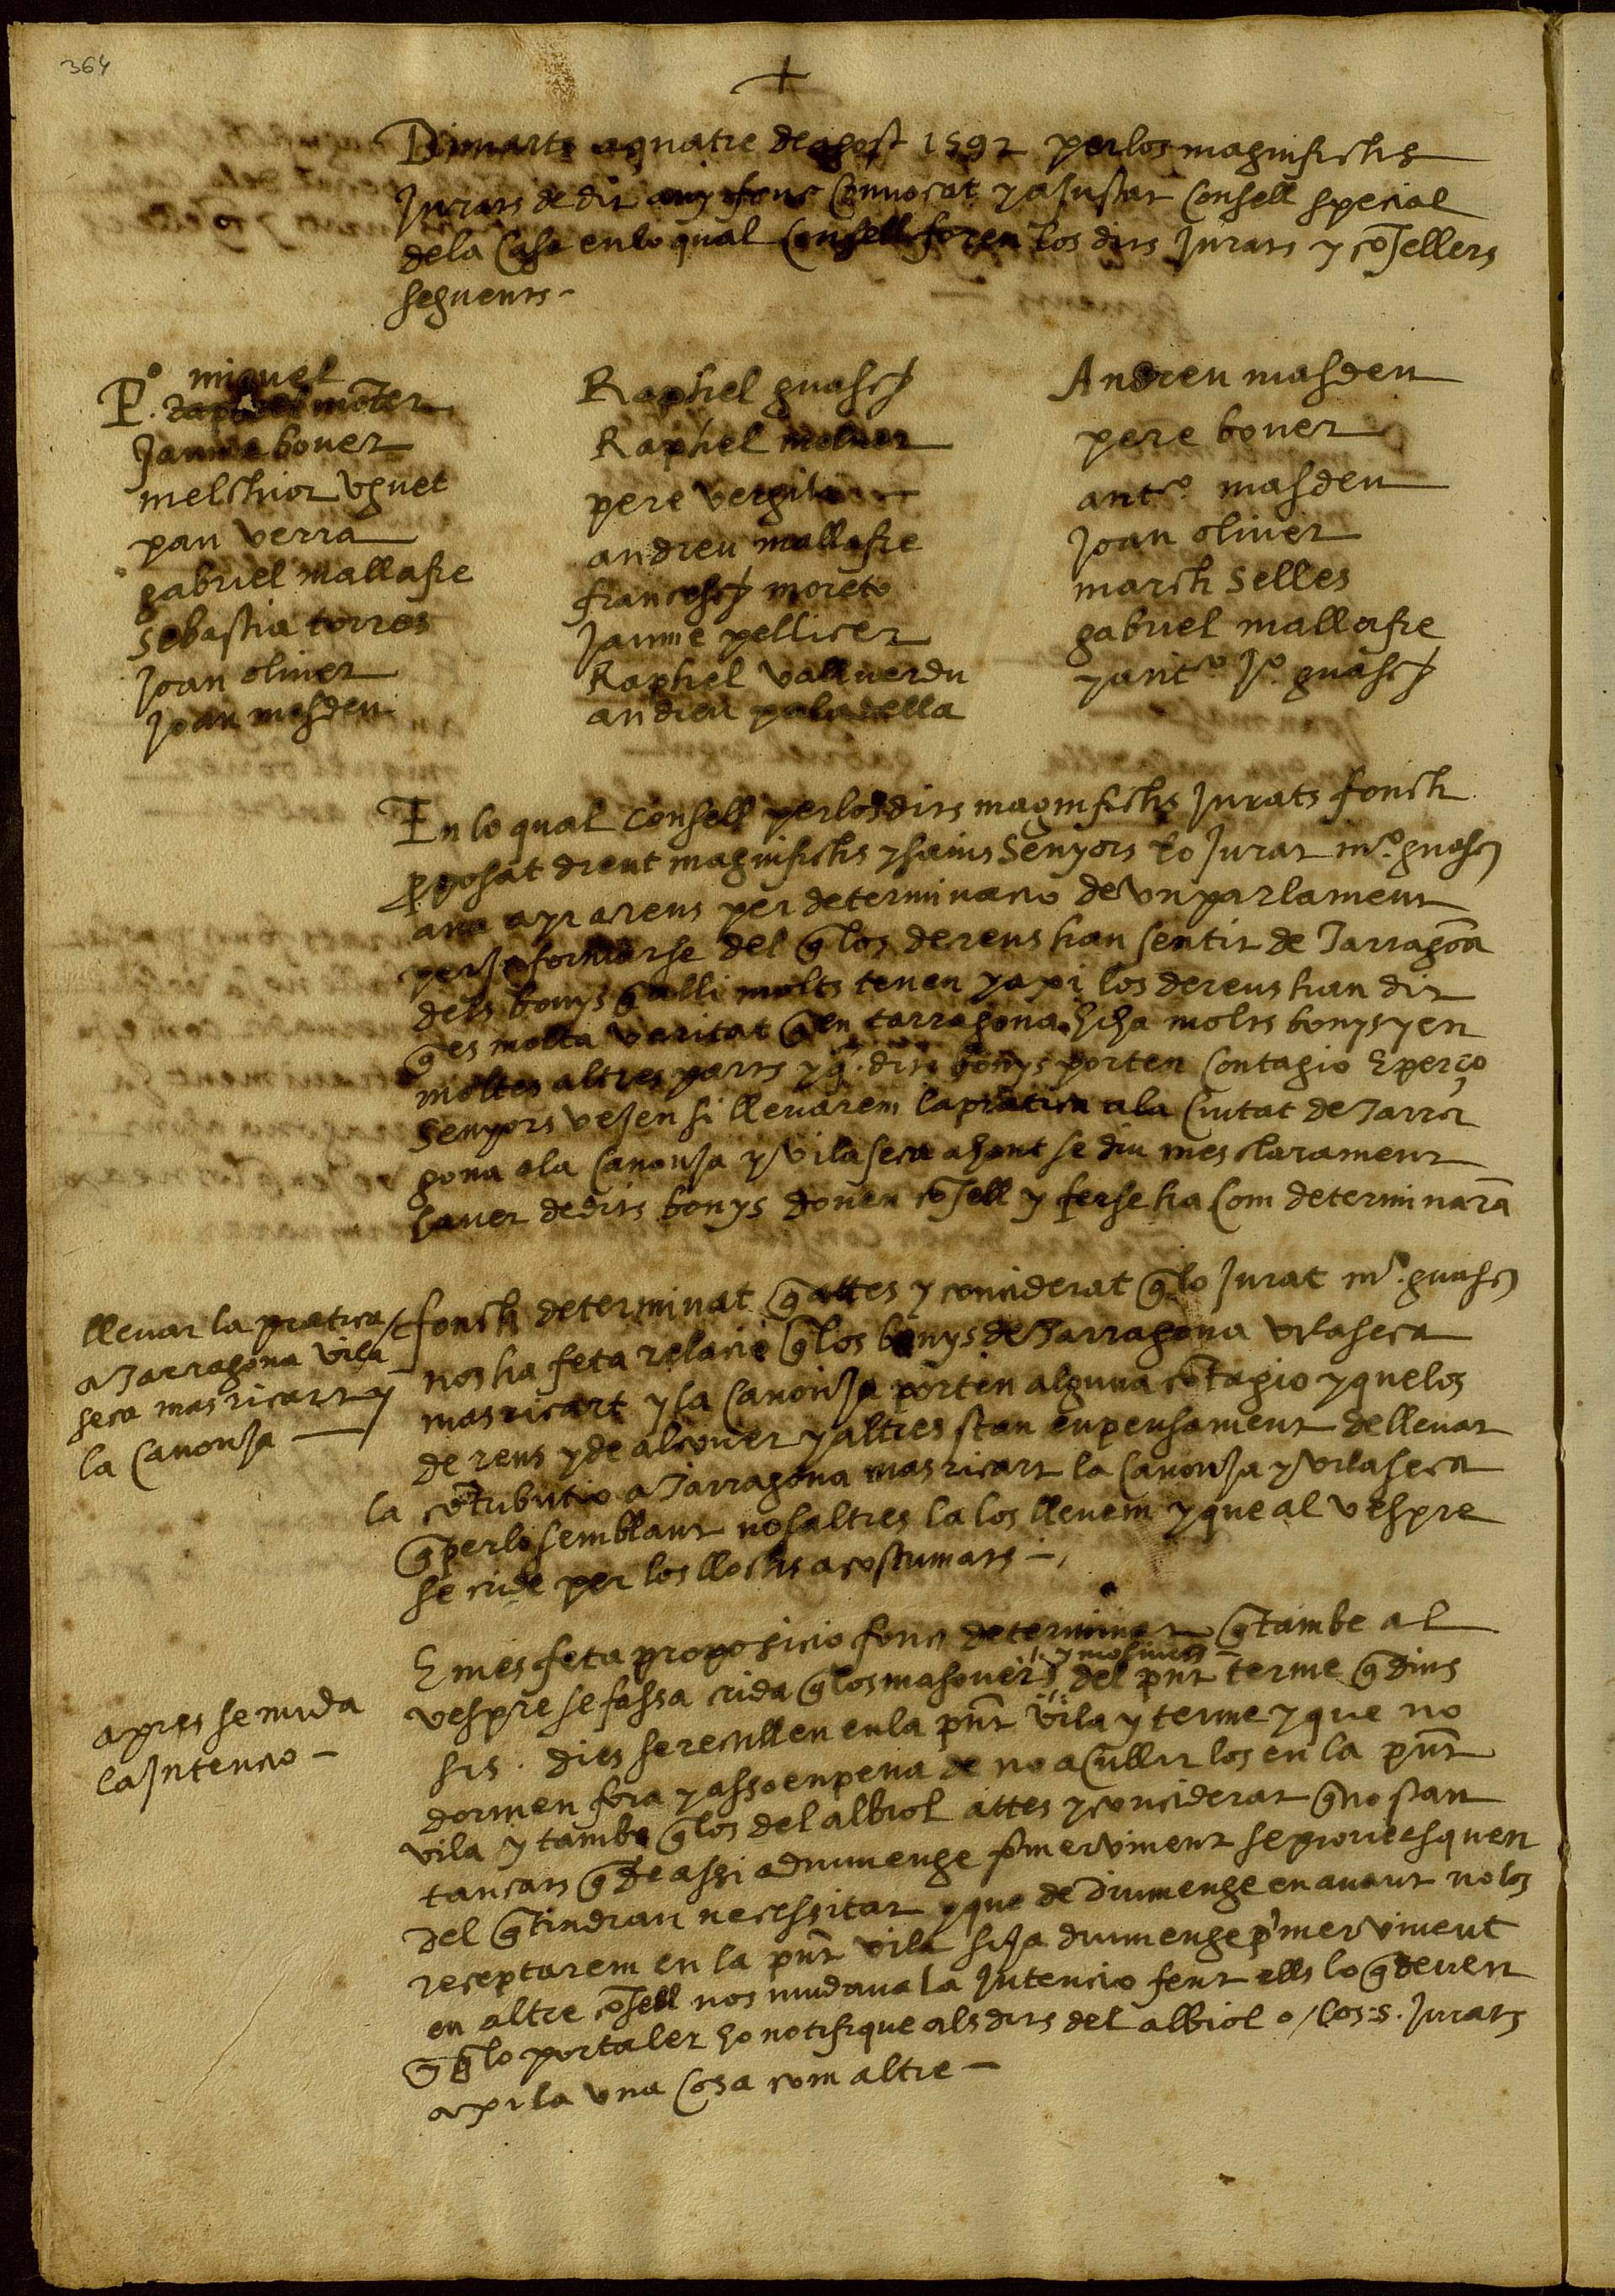 364
+
Dimarts a quatre de agost 1592 per los magnifichs
Jurats de dit any fonc convocat y ajustat consell special
de la casa en lo qual consell foren los dits Jurats y cõsellers
seguents -
Pº miquel
moter
Jaume bover
melchior Uguet
pau verra
gabriel mallafre
sebastia torres
Joan oliver
Joan masdeu
Raphel guasch
Raphel moliner
pere vergili
andreu mallafre
francesch moreto
Jaume pellicer
Raphel vallverdu
andreu paladella
Andreu masdeu
pere bover
antº masdeu
Joan oliver
march selles
gabriel mallafre
y antº Jº guasch
En lo qual consell per los dits magnifichs Jurats fonch
pposat dient magnifichs y savis senyors lo Jurat mº guasch
ana ayr a reus per determinacio de un parlament
per informarse del q̃ los de reus han sentit de Tarragõa
dels bonys q̃ alli molts tenen y axi los de reus han dit
q̃ es molta veritat q̃ en tarragona hi ha molts bonys y en
moltes altres parts y q̃ dits bonys porten contagio E perço
senyors vejen si llevarem la pratica a la ciutat de Tarra
gona a la canonja y vilaseca ahont se diu mes clarament
haver de dits bonys donen cõsell y ferse ha com determinarã
llevar la pratica
a Tarragona vila
seca mas ricart y
la canonja
fonch determinat q̃ attes y conciderat q̃ lo Jurat mº guasch
nos ha feta relacio q̃ los bonys de Tarragona vilaseca
mas ricart y la canonja porten alguna cõtagio y que los
de reus y de alcover y altres stan en pensament de llevar
la cõtributio a Tarragona mas ricart la canonja y vilaseca
q̃ per lo semblant nosaltres la los llevem y que al vespre
se cride per los llochs acostumats -
E mes feta proposicio fonc determinat q̃ tambe al
y moliners
vespre se fassa crida q̃ los masovers del pnt terme q̃ dins
apres se muda
la Intencio -
sis . dies se recullen en la pnt vila y terme y que no
dormen fora y asso en pena de no acullir los en la pnt
vila y tambe q̃ los del albiol attes y conciderat q̃ no stan
tancats q̃ de assi a diumenge pmer vinent se proveesquen
del q̃ tindran necessitat y que de diumenge en avant no los
receptarem en la pnt vila si ja diumenge pmer vinent
en altre cõsell nos mudava la Intencio fent ells lo q̃ deuen
y q̃ lo portaler ho notifique als dits del albiol o / los .s. Jurats
axi la una cosa com altre -